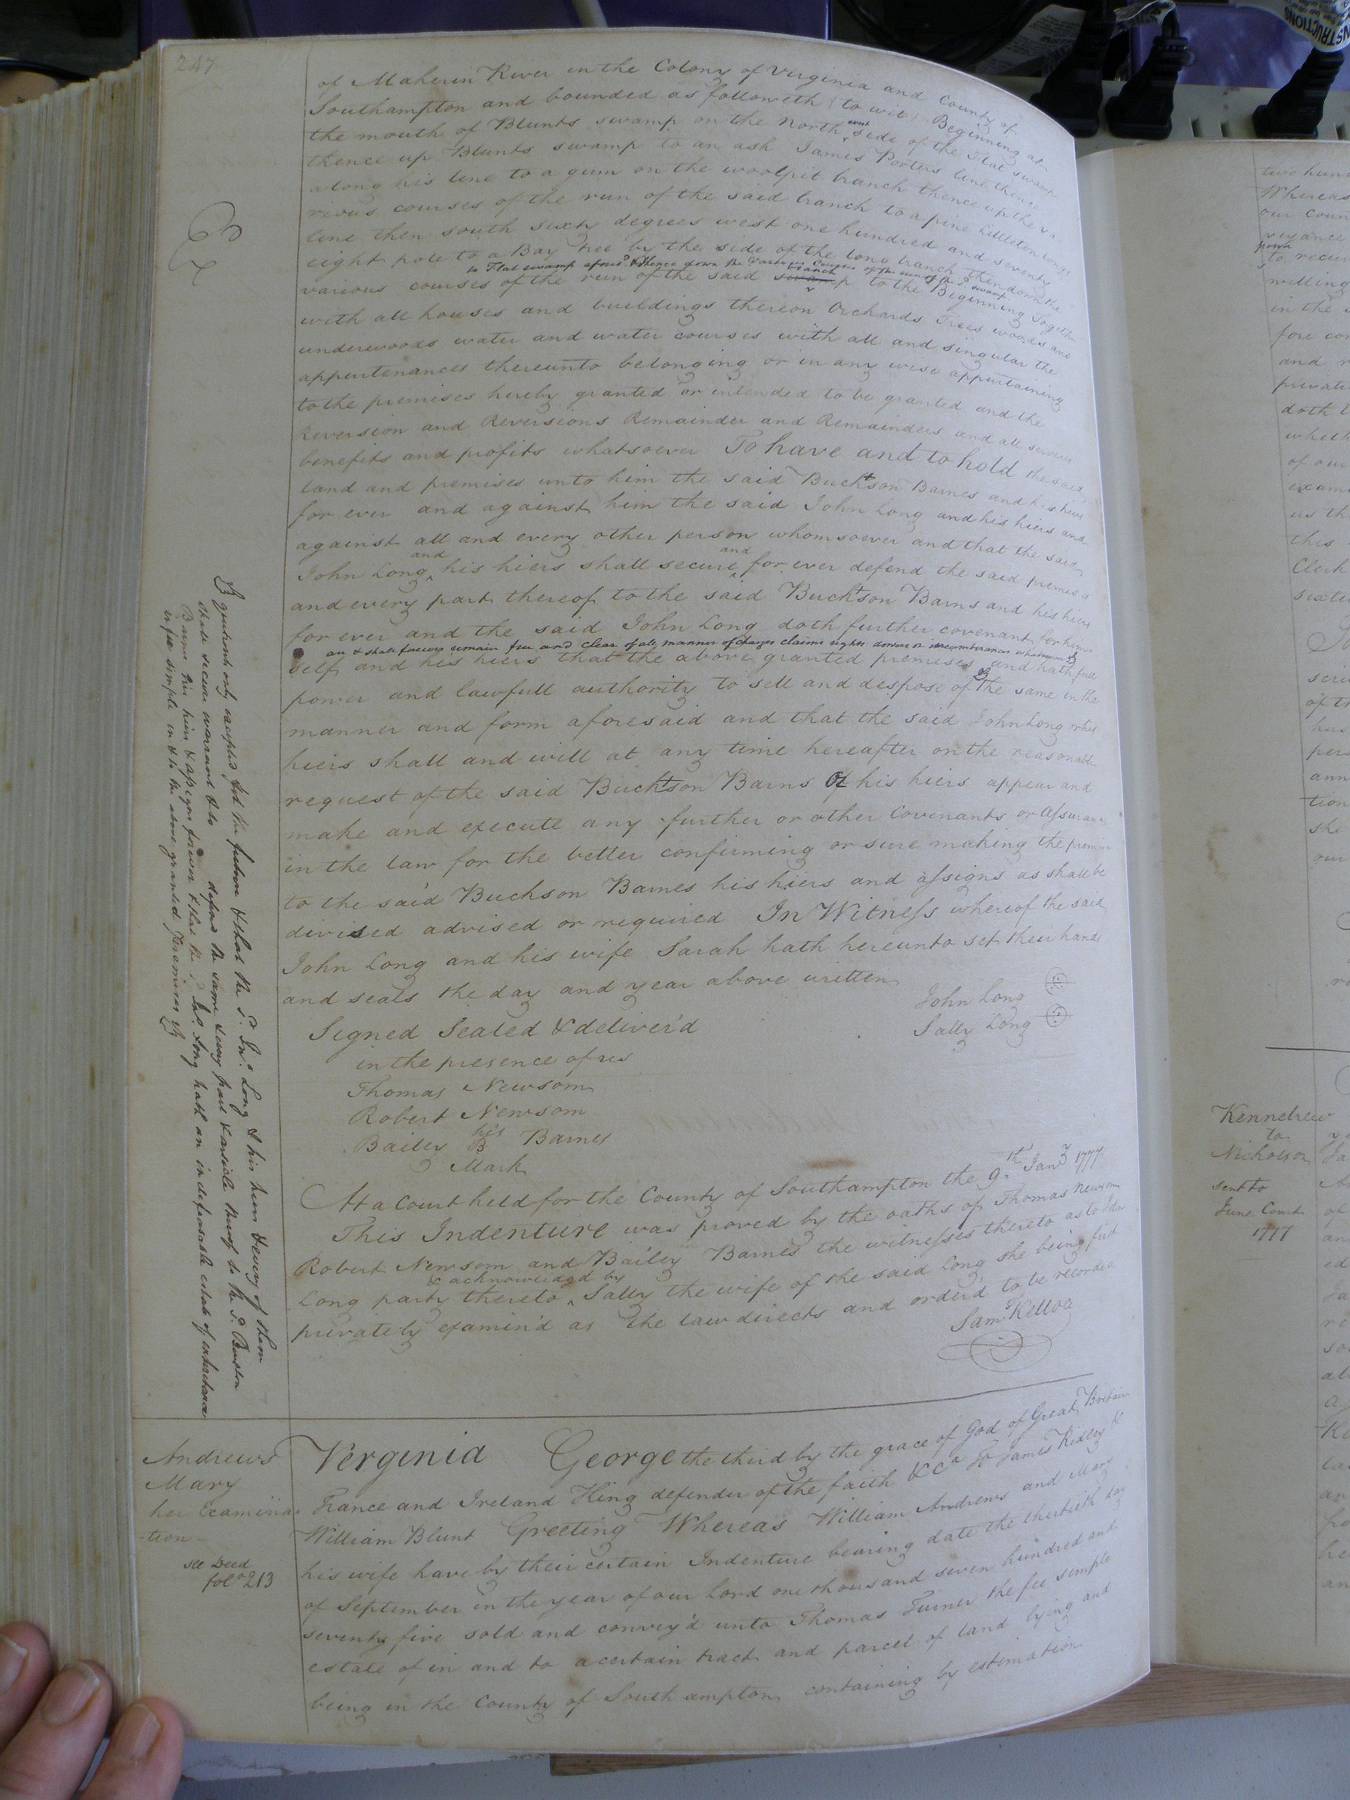 247
of Maherin River in the Colony of Virginia and County of
Southampton and bounded as followeth (to wit) Beginning at
the mouth of Blunts swamp on the North west side of the Flat swamp
thence up Blunts swamp to an ash James Porters line thence
along his line to a gum on the woolpit branch thence up the va
rious courses of the run of the said branch to a pine Littleton Longs
line then south sixty degrees west one hundred and seventy
eight pole to a Bay tree by the side of the long branch then down the
to Flat swamp afores.d & thence down the Various Courses of the run of the s.d swamp
various courses of the run of the said swamp branch to the Beginning Together
with all houses and buildings thereon Orchards Trees woods and
underwoods water and water courses with all and singular the
appurtenances thereunto belonging or in any wise appurtaining
to the premises hereby granted or intended to be granted and the
Reversion and Reversions Remainder and Remainders and all services
benefits and profits whatsoever To have and to hold the said
land and premises unto him the said Buckson Barnes and his hiers
for ever and against him the said John Long and his hiers and
against all and every other person whomsoever and that the said
John Long and his hiers shall secure and for ever defend the said premises
and every part thereof to the said Buckson Barns and his hiers
for ever and the said John Long doth further covenant for him
are & shall forever remain free and clear of all manner of charges claims rights dower or incumbrances whatsoever &
self and his hiers that the above granted premises and hath full
power and lawfull authority to sell and despose of the same in the
manner and form aforesaid and that the said John Long or his
hiers shall and will at any time hereafter on the reasonable
request of the said Buckson Barns or his hiers appear and
make and execute any further or other Covenants or assurance
in the law for the better confirming or sure making the premises
to the said Buckson Barnes his hiers and assigns as shall be
devised advised or required In Witness whereof the said
John Long and his wife Sarah hath hereunto set their hands
and seals the day and year above written
John Long
Sally Long
Signed Sealed & deliver'd
in the presence of us
Thomas Newsom
Robert Newsom
Bailey his B Barnes
Mark
At a Court held for the County of Southampton the 9.th Jan.y 1777
This Indenture was proved by the oaths of Thomas Newsom
Robert Newsom and Bailey Barnes the witnesses thereto as to John
Long party thereto & acknowledgd by Sally the wife of the said Long she being first
privately examin'd as the law directs and order'd to be recorded
Sam.l Kello
Quitrents only excepted for the future & that the s.d Jn.o Long & his heirs & every of them
shall secure warrant & defend the same & every part & article thereof to the s.d Buxton
Barnes his heirs & assigns forever & that the s.d Jn.o Long hath an indefeasible estate of inheritance
in fee simple in & to the above granted premises &
Andrews
Mary
her Examina
-tion
see Deed
fol.o 213
Verginia George the third by the grace of God of Great Britain
France and Ireland King defender of the faith &Ca To James Ridley &
William Blunt Greeting Whereas William Andrews and Mary
his wife have by their certain Indenture bearing date the thirtieth day
of September in the year of our Lord one thousand seven hundred and
seventy five sold and convey'd unto Thomas Turner the fee simple
estate of in and to a certain tract and parcel of land lying and
being in the County of Southampton containing by estimation
two hun
Whereas
our coun
veyance
to recei
willing
in the
fore co
and
privat
doth
wheth
of our
exam
us th
this
Clerk
sixte
Kennebrew
to
Nicholson
sent to
June Court
1777